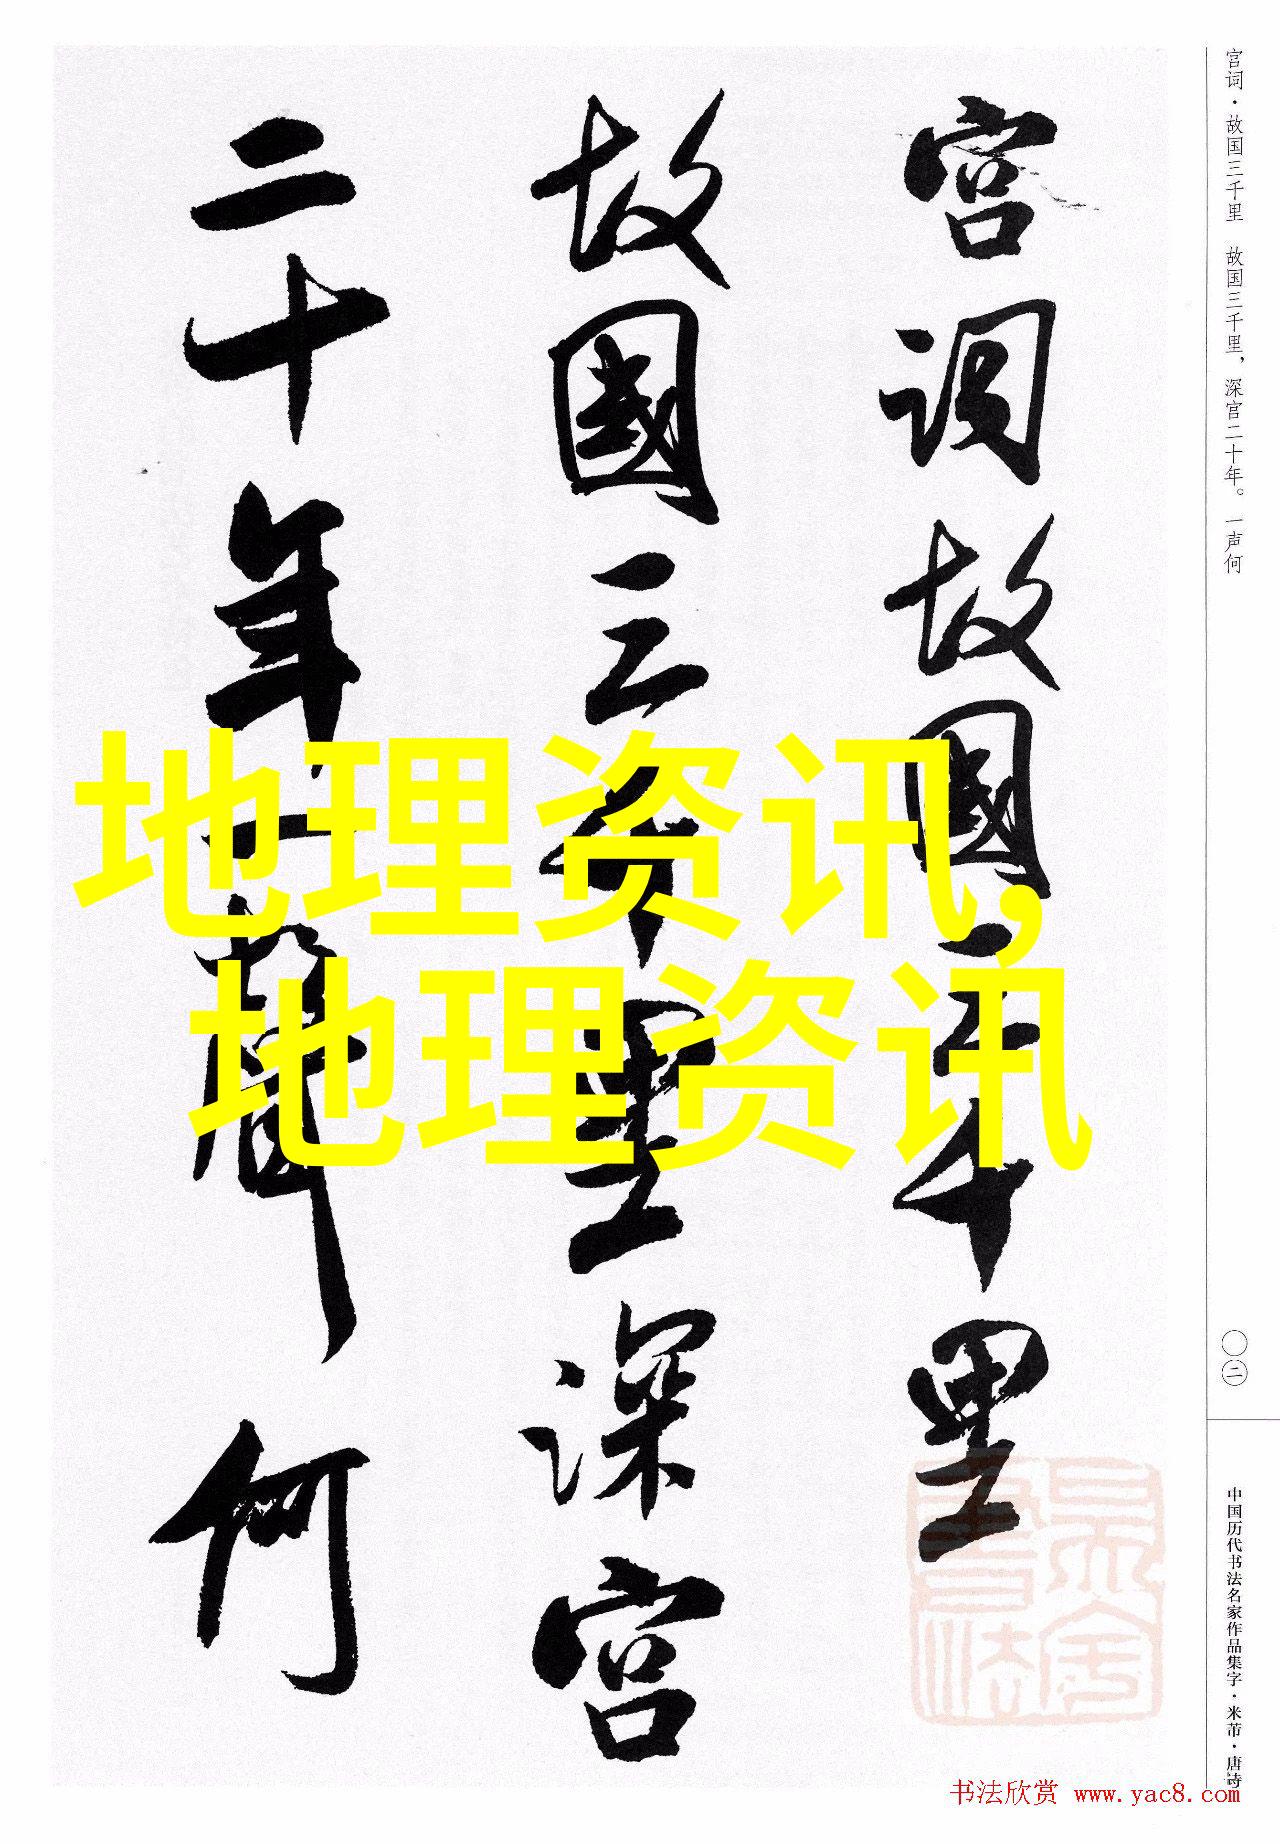 宫词故國三千里
故國三千里深宫
二十年一聲何
宫词·故国三千里 故国三千里，深宫二十年。一声何
〇二
中国历代书法名家作品集字·米芾·唐诗
地理资讯,
地理资讯
书法欣赏 www.yac8.com